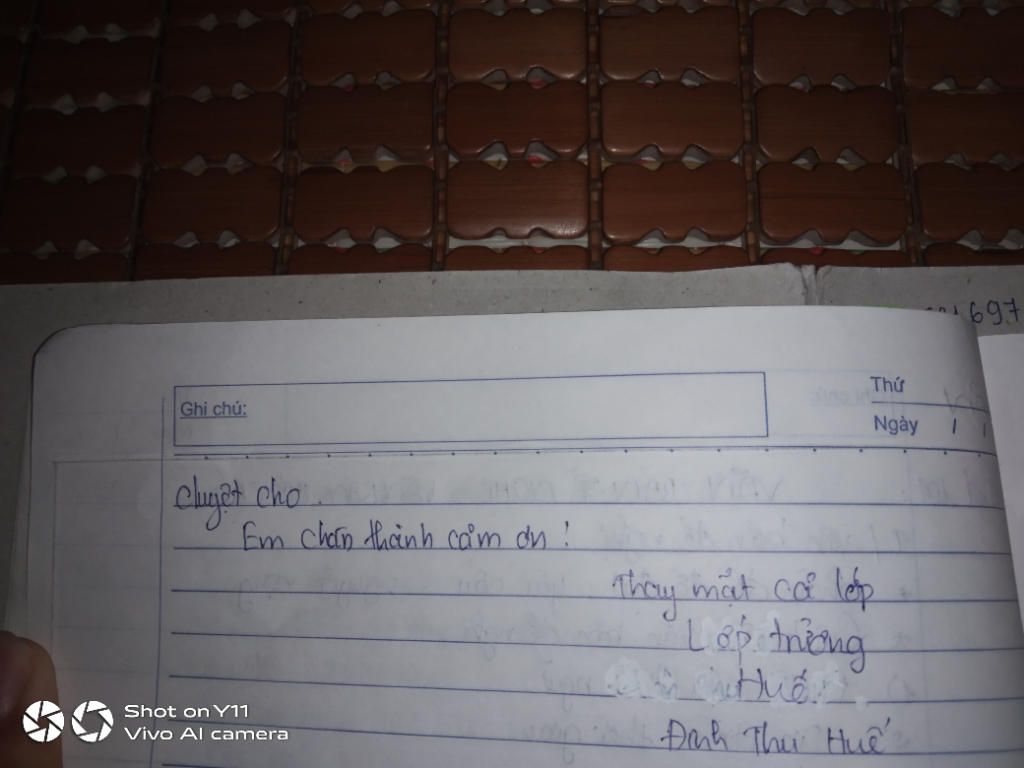 697
Ghi chú:
Thứ
Ngày
duyệt cho.
Em chân thành cảm ơn!
Thay mặt cả lớp
Lớp trưởng
Huế
Đinh Thu Huế
Shot on Y11
Vivo AI camera